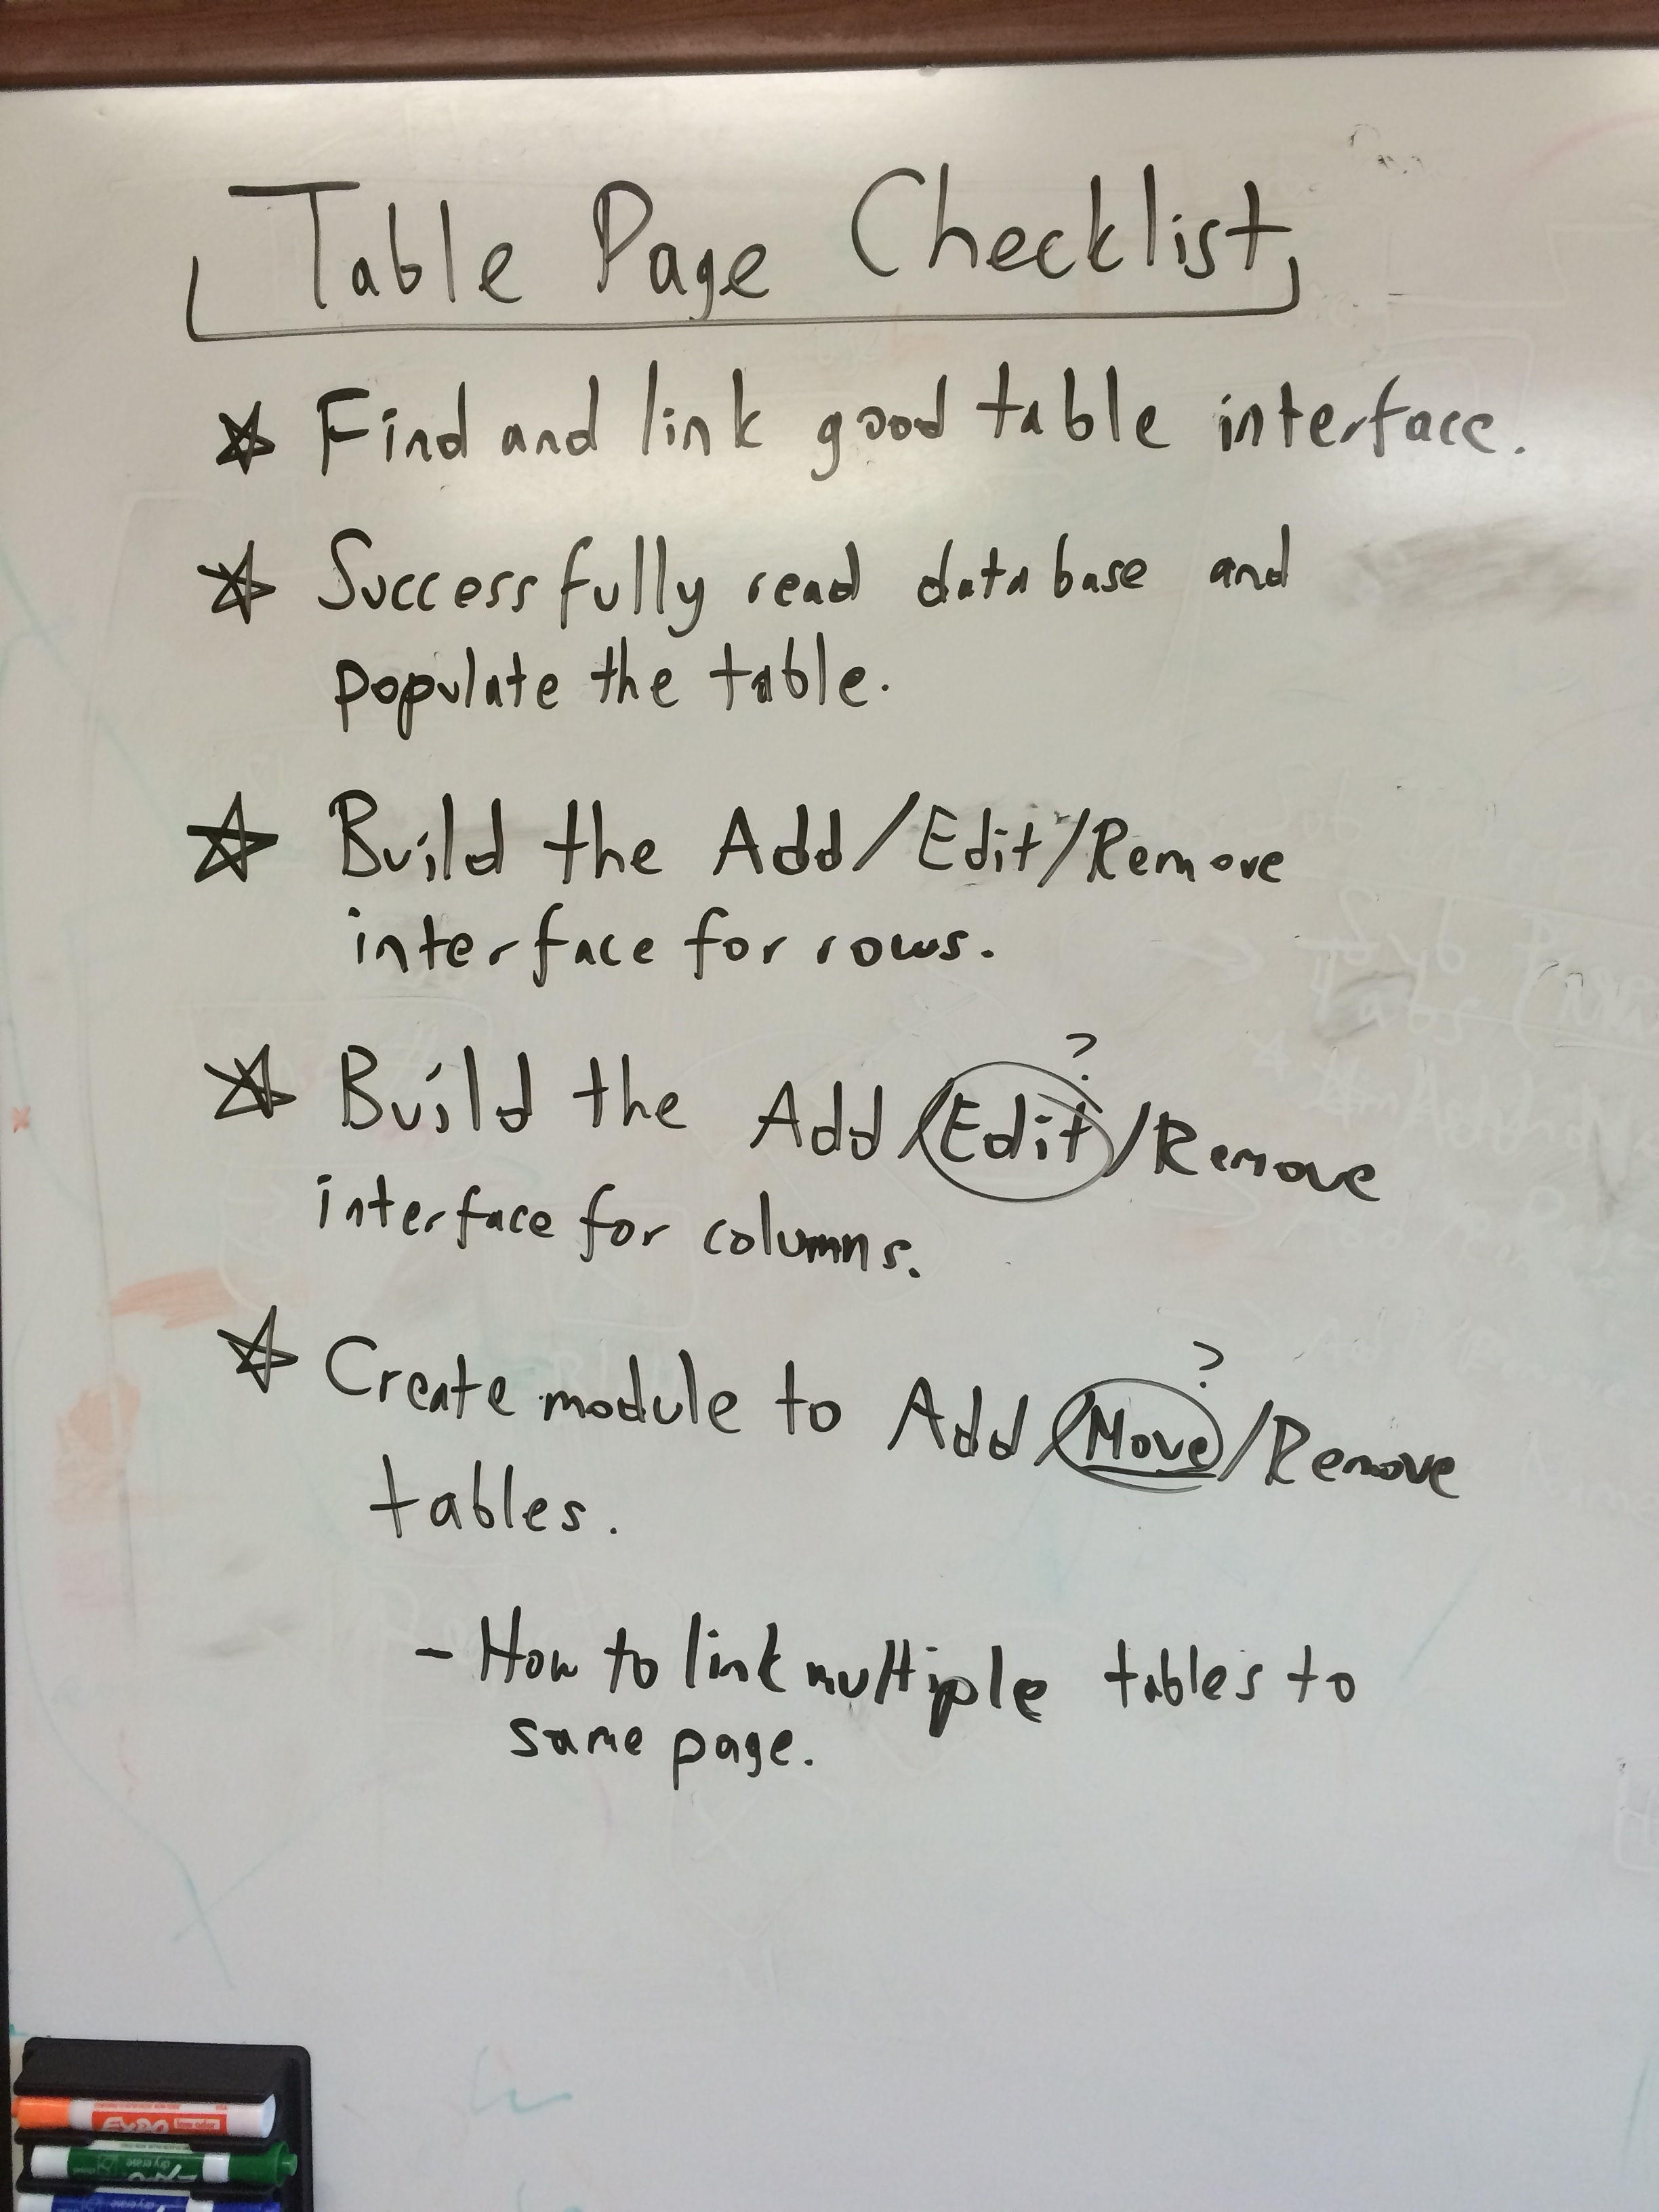 Table Page Checklist
Find and link good table interface.
Successfully read database and
populate the table.
Build the Add/Edit/Remove
interface for rows.
?
Build the Add/Edit/Remove
interface for columns.
?
Create module to Add/Move/Remove
tables.
- How to link multiple tables to
same page.
EXPO
low odor
dry erase